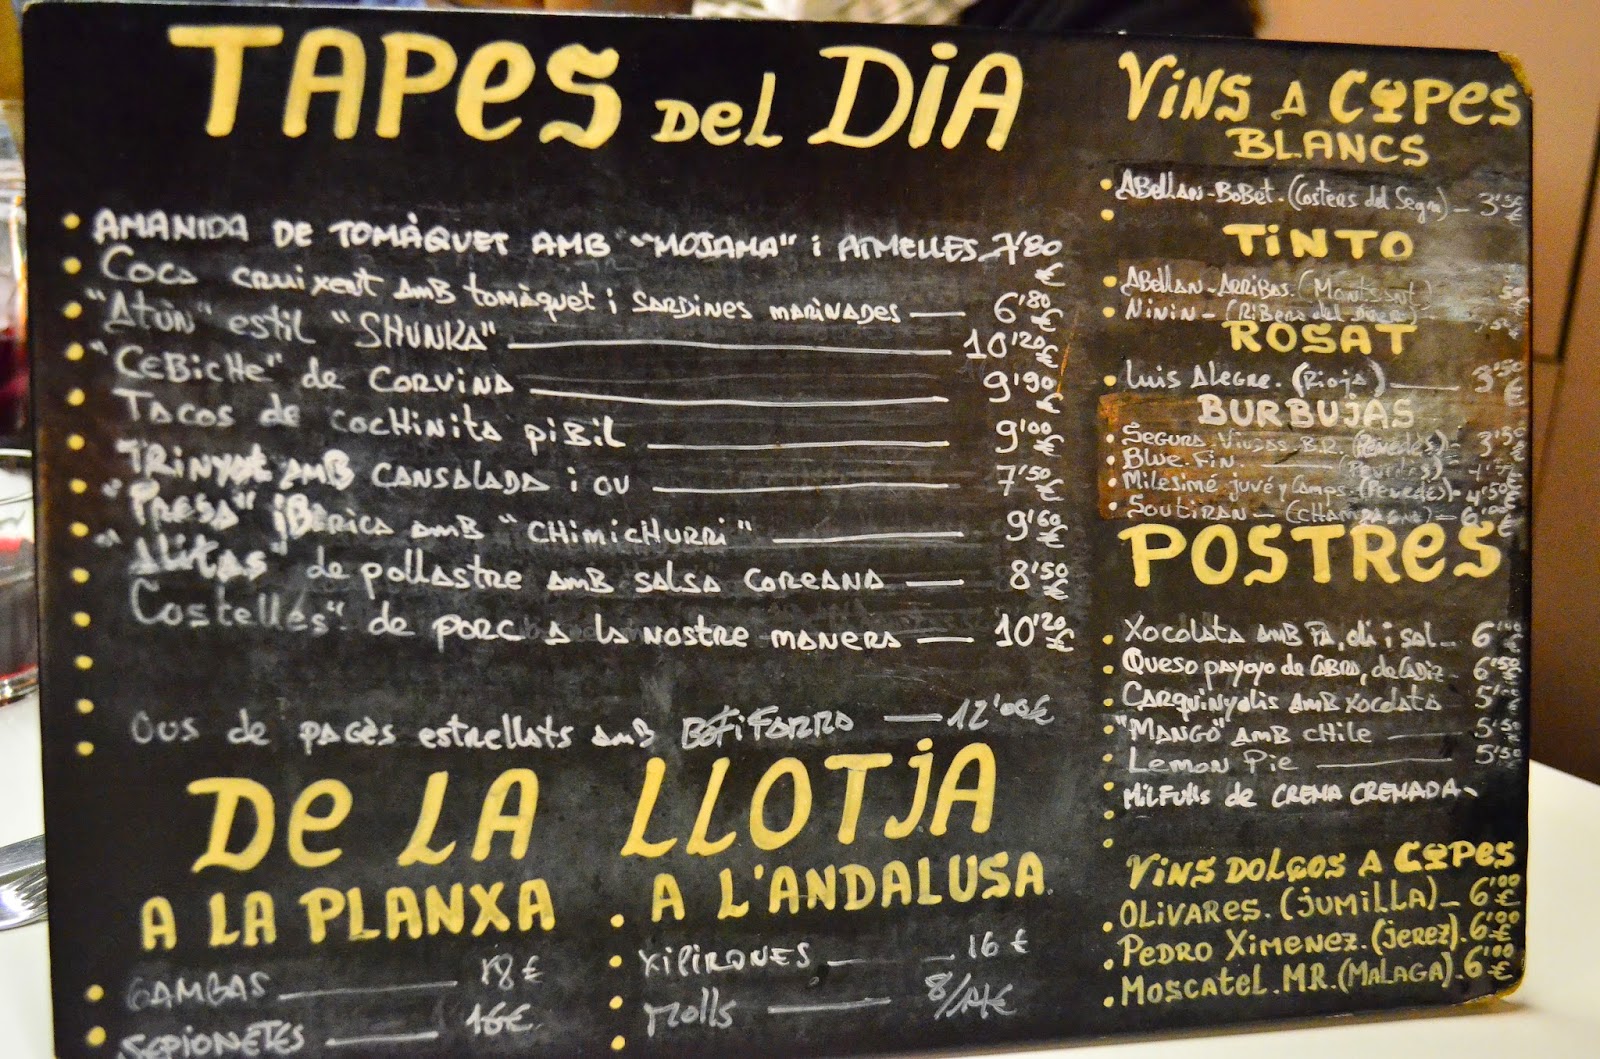 TAPES DEL DIA
AMANIDA DE TOMÀQUET AMB "MOJAMA" i ATMELLES 7'80 €
COCA CRUIXENT AMB TOMÀQUET i SARDINES MARINADES — 6'80 €
"ATÚN" estil "SHUNKA" — 10'20 €
"CEBICHE" de CORVINA — 9'90 €
TACOS de COCHINITA PIBIL — 9'00 €
TRINYAT AMB CANSALADA i OU — 7'50 €
"PRESA" iBÈRICA AMB "CHIMICHURRI" — 9'60 €
"ALITAS" de pollastre AMB SALSA COREANA — 8'50 €
Costelles" de PORC A LA NOSTRE MANERA — 10'20 €
OUS de PAGÈS estrellats AMB BOTIFARRA — 12'00 €
DE LA LLOTJA
A LA PLANXA
GAMBAS — 18 €
SEPIONETES — 16€
A L'ANDALUSA
XIPIRONES — 16 €
Molls
VINS A COPES
BLANCS
ABELLAN-BOBET. (Costers del Segre) — 3'50 €
TINTO
ABELLAN-ARRIBAS. (Montsant)
NININ - (RIBERA del DUERO)
ROSAT
LUIS ALEGRE. (RIOJA) — 3'50 €
BURBUJAS
SEGURA VIUDAS B.R. (PENEDÈS) - 3'50
BLUE FIN — (PENEDÈS)
MILESIMÉ JUVÉ y CAMPS. (PENEDÈS) - 4'50 €
SOUTIRAN — (CHAMPAGNE) - 6'00 €
POSTRES
XOCOLATA AMB PA, oli i sal - 6'00 €
QUESO PAYOYO de CABRA, de CÁDIZ - 6'50 €
CARQUINYOLIS AMB XOCOLATA
"MANGO" AMB CHILE — 5'50 €
LEMON PIE — 5'50
MILFULLS de CREMA CREMADA
VINS DOLÇOS A COPES
OLIVARES. (JUMILLA) — 6'00 €
PEDRO XIMENEZ. (JEREZ). 6'00 €
MOSCATEL. MR. (MALAGA). 6'00 €